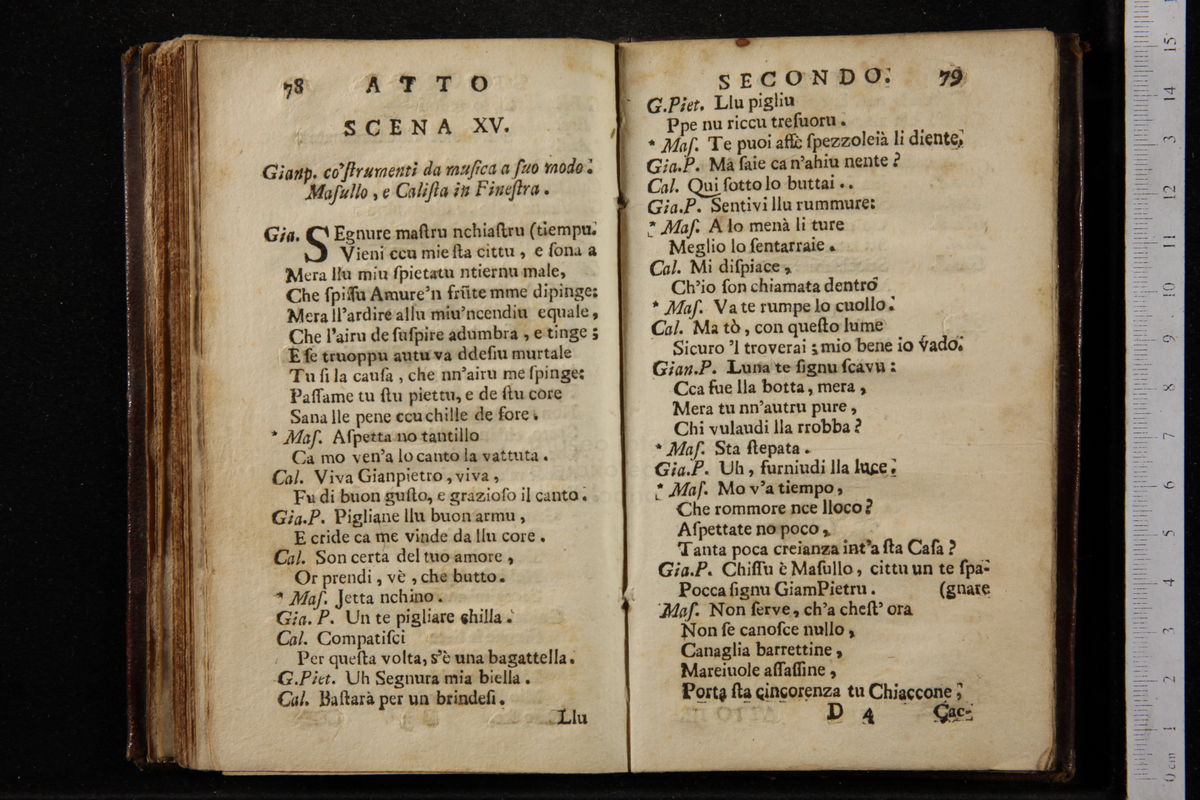 78 ATTO
SCENA XV.
Gianp. co'ſtrumenti da muſica a ſuo modo:
Maſullo, e Caliſta in Fineſtra.
Gia. SEgnure maſtru nchiaſtru (tiempu.
Vieni ccu mie ſta cittu, e ſona a
Mera llu miu ſpietatu ntiernu male,
Che ſpiſſu Amure'n frũte mme dipinge:
Mera ll'ardire allu miu'ncendiu equale,
Che l'airu de ſuſpire adumbra, e tinge;
E ſe truoppu autu va ddeſiu murtale
Tu ſi la cauſa, che nn'airu me ſpinge:
Paſſame tu ſtu piettu, e de ſtu core
Sana lle pene ccu chille de fore.
* Maſ. Aſpetta no tantillo
Ca mo ven'a lo canto la vattuta.
Cal. Viva Gianpietro, viva,
Fu di buon guſto, e grazioſo il canto.
Gia.P. Pigliane llu buon armu,
E cride ca me vinde da llu core.
Cal. Son certa del tuo amore,
Or prendi, vè, che butto.
* Maſ. Jetta nchino.
Gia. P. Un te pigliare chilla.
Cal. Compatiſci
Per queſta volta, s'è una bagattella.
G.Piet. Uh Segnura mia biella.
Cal. Baſtarà per un brindeſi.
Llu
SECONDO. 79
G.Piet. Llu pigliu
Ppe nu riccu treſuoru.
* Maſ. Te puoi affè ſpezzoleià li diente.
Gia.P. Ma ſaie ca n'ahiu nente?
Cal. Qui ſotto lo buttai..
Gia.P. Sentivi llu rummure:
* Maſ. A lo menà li ture
Meglio lo ſentarraie.
Cal. Mi diſpiace,
Ch'io ſon chiamata dentro
* Maſ. Va te rumpe lo cuollo.
Cal. Ma tò, con queſto lume
Sicuro 'l troverai; mio bene io vado.
Gian.P. Luna te ſignu ſcavu:
Cca fue lla botta, mera,
Mera tu nn'autru pure,
Chi vulaudi lla rrobba?
* Maſ. Sta ſtepata.
Gia.P. Uh, furniudi lla luce.
* Maſ. Mo v'a tiempo,
Che rommore nce lloco?
Aſpettate no poco,
Tanta poca creianza int'a ſta Caſa?
Gia.P. Chiſſu è Maſullo, cittu un te ſpa-
Pocca ſignu GiamPietru. (gnare
Maſ. Non ſerve, ch'a cheſt' ora
Non ſe canoſce nullo,
Canaglia barrettine,
Mareiuole aſſaſſine,
Porta ſta cincorenza tu Chiaccone;
D 4 Cac-